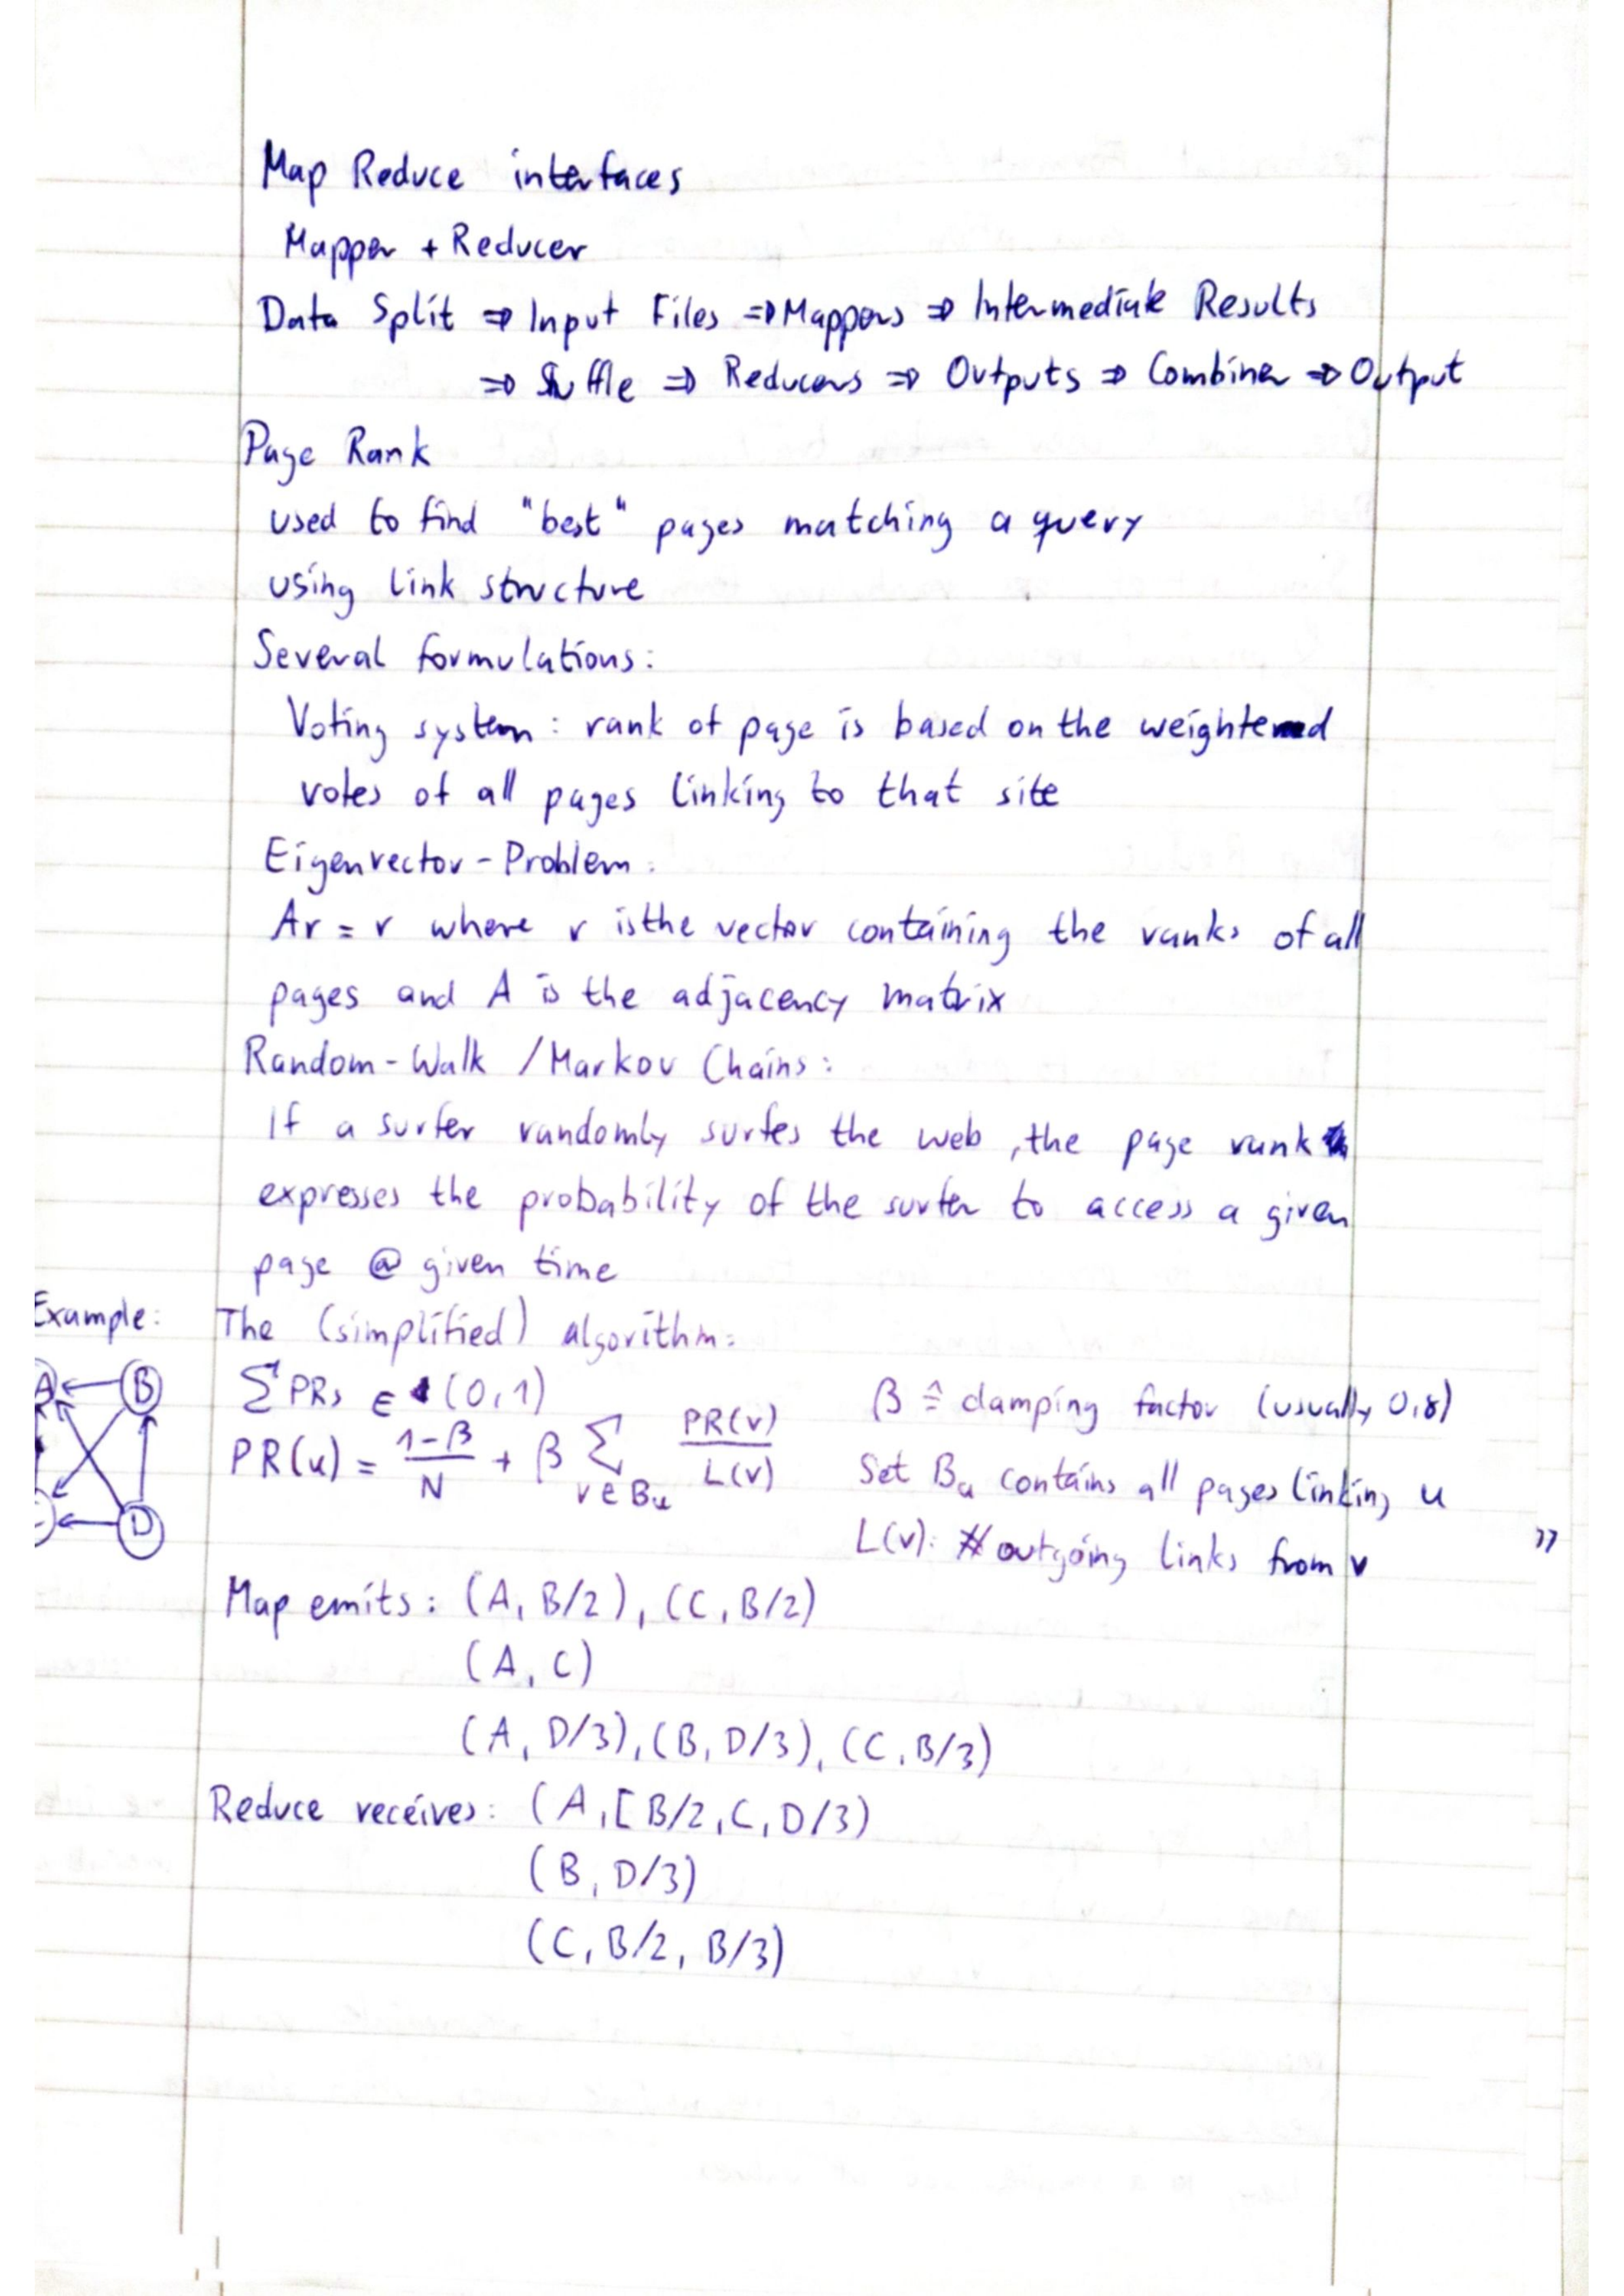 Map Reduce interfaces
Mapper + Reducer
Data Split ⇒ Input Files ⇒ Mappers ⇒ Intermediate Results
⇒ Suffle ⇒ Reducers ⇒ Outputs ⇒ Combiner ⇒ Output
Page Rank
used to find "best" pages matching a query
using link structure
Several formulations:
Voting system: rank of page is based on the weightened
votes of all pages linking to that site
Eigenvector-Problem:
Ar = r where r is the vector containing the ranks of all
pages and A is the adjacency matrix
Random-Walk / Markov Chains:
If a surfer randomly surfes the web, the page rank
expresses the probability of the surfer to access a given
page @ given time
Example: The (simplified) algorithm:
A B
∑ PRs ∈ (0,1) β ≙ damping factor (usually 0,8)
PR(u) = (1-β)/N + β ∑ v∈Bu PR(v)/L(v) Set Bu contains all pages linking u
D
L(v): # outgoing links from v "
Map emits: (A, B/2), (C, B/2)
(A, C)
(A, D/3), (B, D/3), (C, B/3)
Reduce receives: (A, [B/2, C, D/3)
(B, D/3)
(C, B/2, B/3)